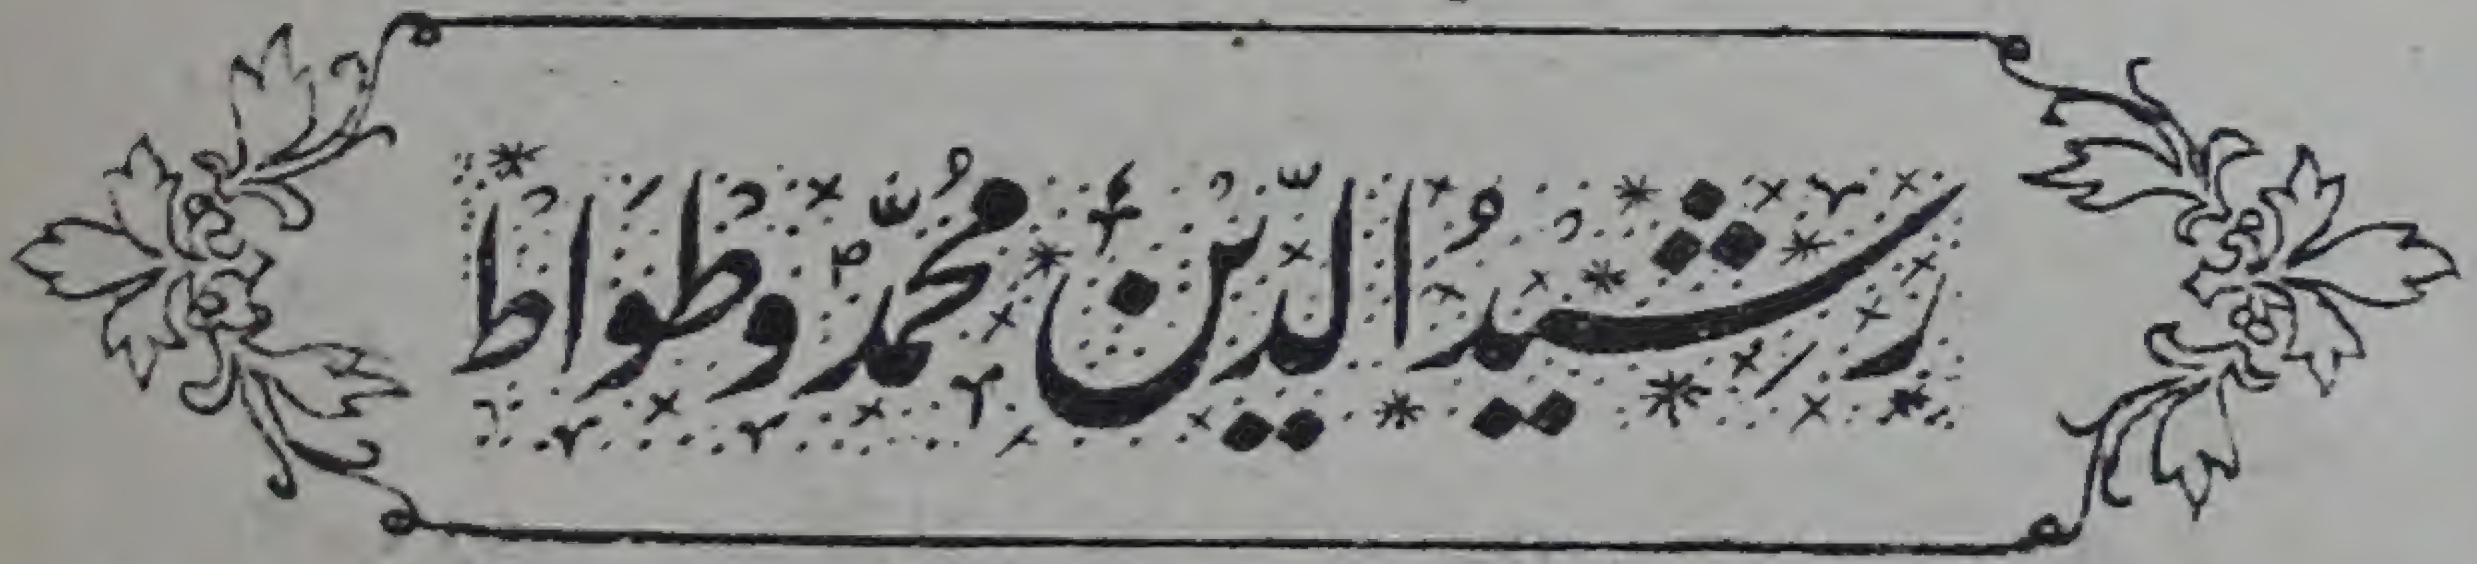 رشیدُ الدّین محمّد وطواط